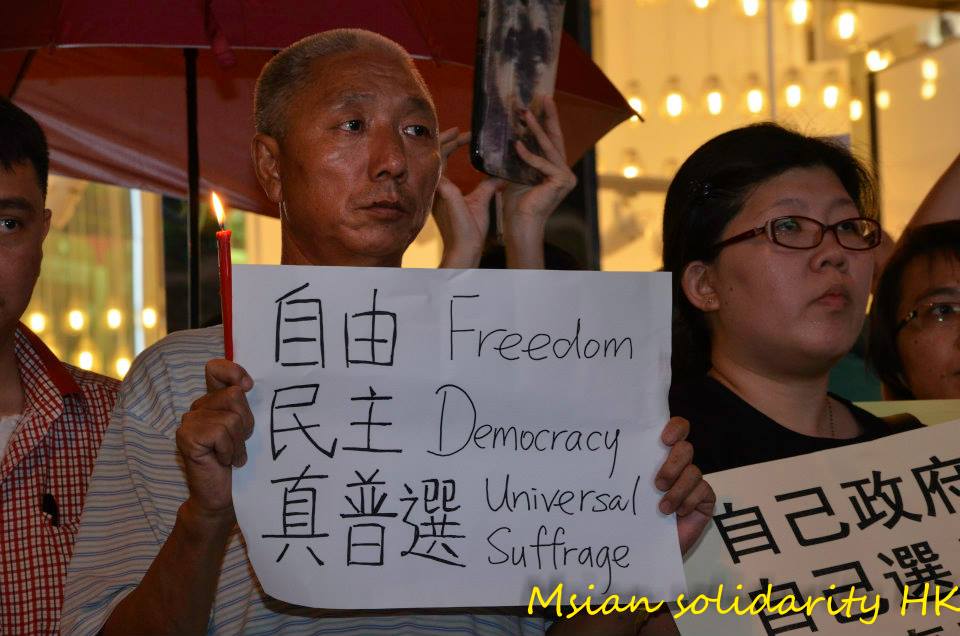 自由 Freedom
民主 Democracy
真普選 Universal Suffrage
自己政府
自己選
Msian solidarity HK